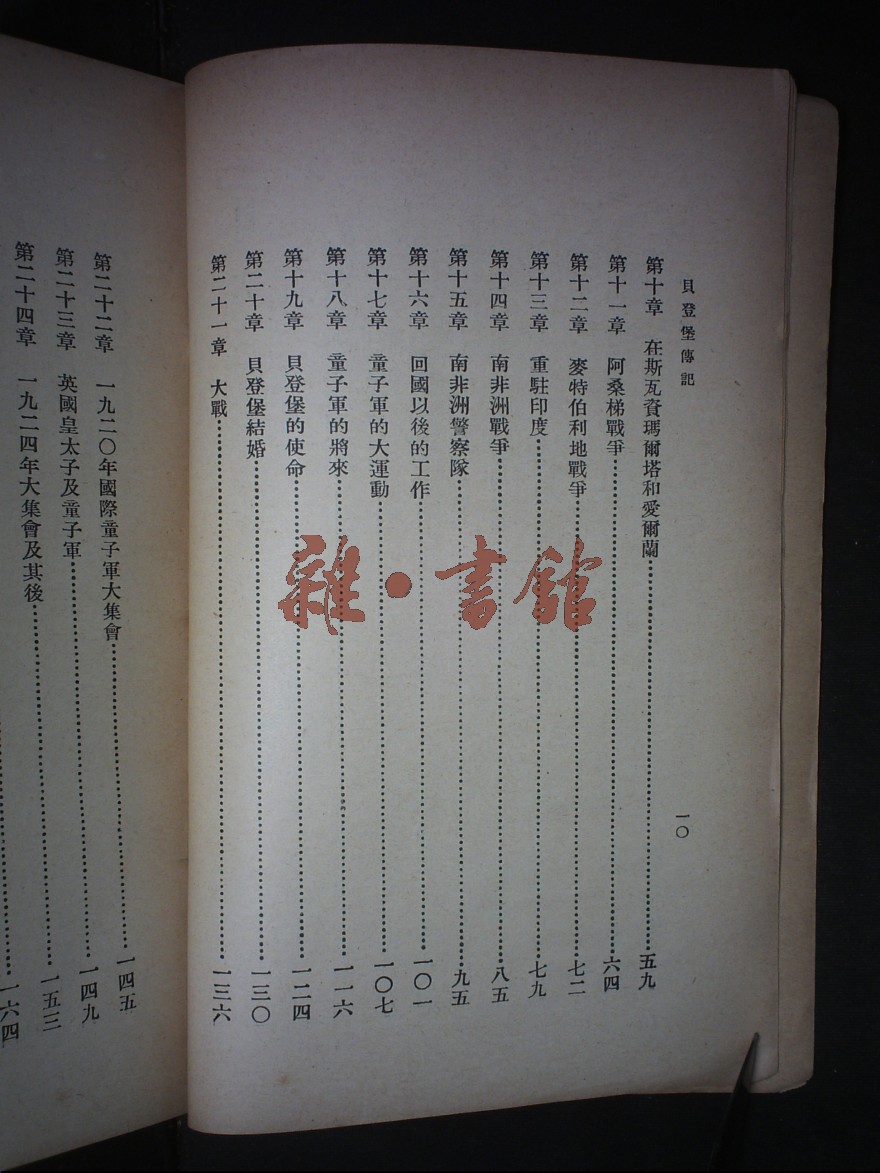 貝登堡傳記
一〇
第十章 在斯瓦資瑪爾塔和愛爾蘭……五九
第十一章 阿桑梯戰爭……六四
第十二章 麥特伯利地戰爭……七二
第十三章 重駐印度……七九
第十四章 南非洲戰爭……八五
第十五章 南非洲警察隊……九五
第十六章 回國以後的工作……一〇一
第十七章 童子軍的大運動……一〇七
第十八章 童子軍的將來……一一六
第十九章 貝登堡的使命……一二四
第二十章 貝登堡結婚……一三〇
第二十一章 大戰……一三六
第二十二章 一九二〇年國際童子軍大集會……一四五
第二十三章 英國皇太子及童子軍……一四九
第二十四章 一九二四年大集會及其後……一五三
……一六四
雜·書館